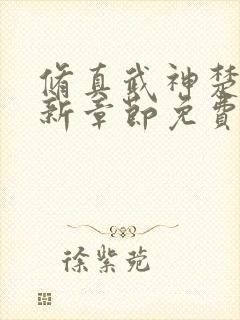 脩真武神楚
新章節免費
徐紫苑